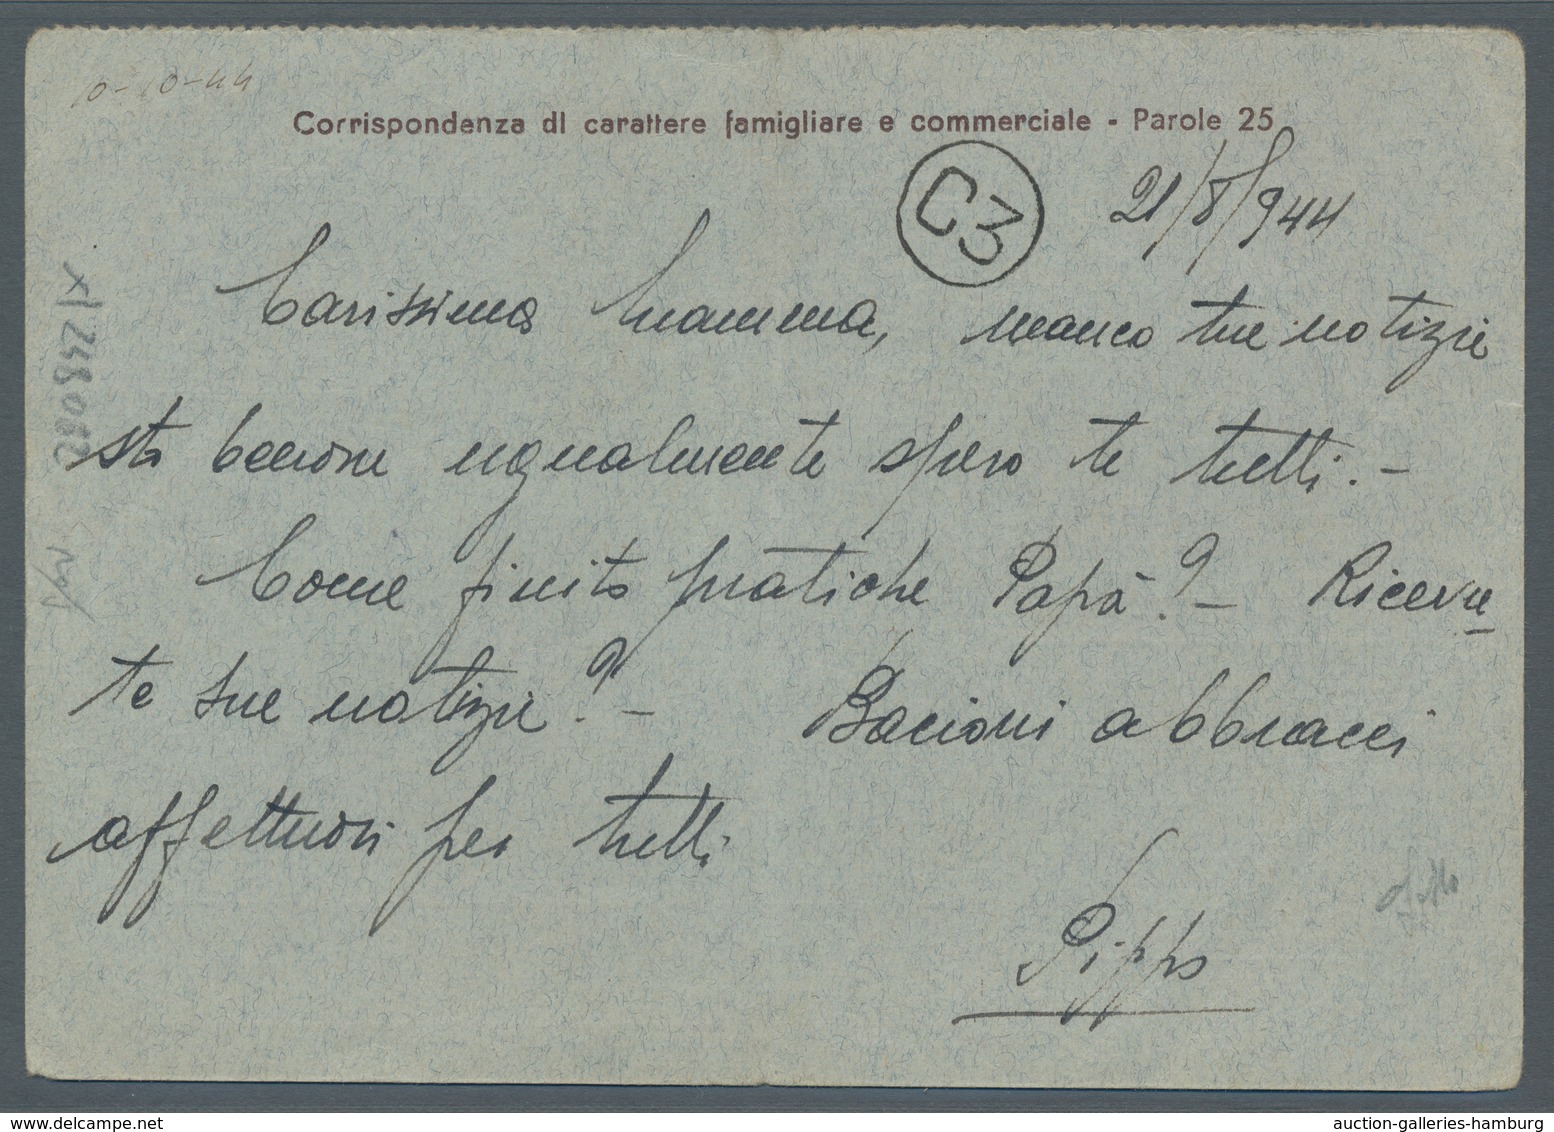 10-10-44
Corrispondenza di carattere famigliare e commerciale - Parole 25
C3
21/8/944
Carissima Mamma, manco tue notizie
sto benone ugualmente spero te tutti. -
Come finito pratiche Papà? - Ricevu
te sue notizie? - Bacioni abbracci
affettuosi per tutti
Pippo
x1248082
auction-galleries-hamburg